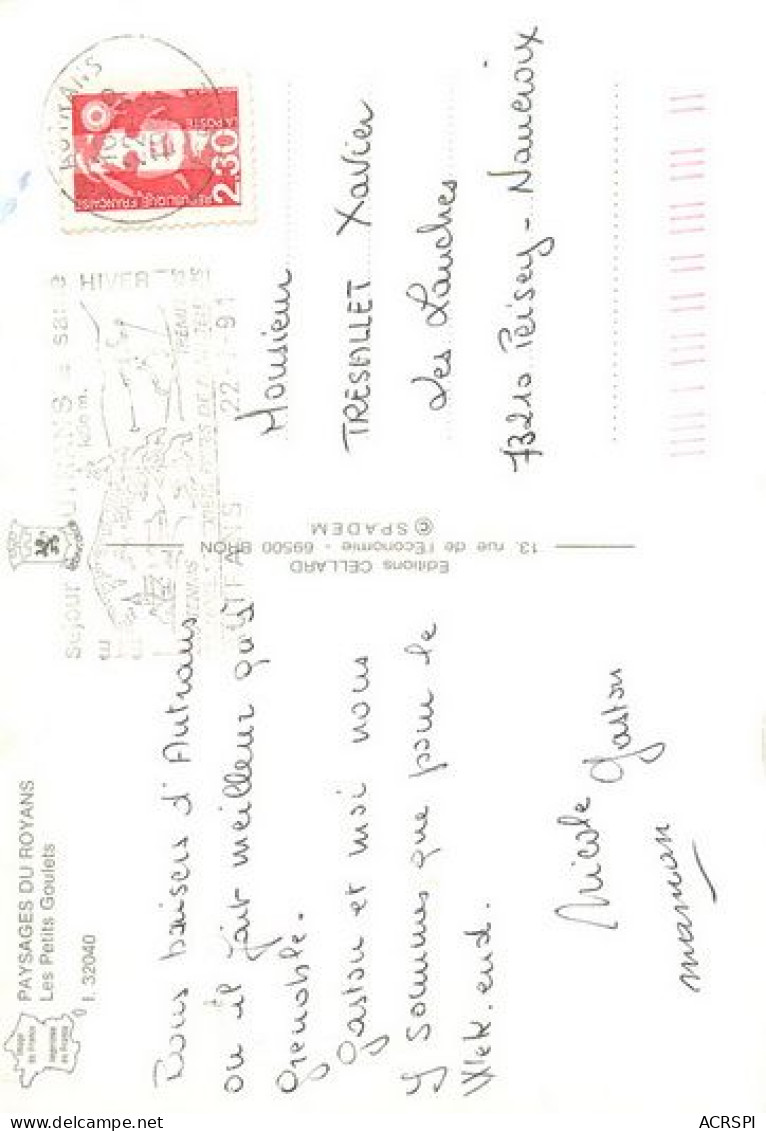 PAYSAGES DU ROYANS
Les Petits Goulets
I. 32040
Image de France
Bons baisers d'Autrans
ou il fait meilleur qu'à
Grenoble.
Gaston et moi nous
y sommes que pour le
Week.end.
Nicole Gaston
maman
Editions CELLARD
13, rue de l'Economie - 69500 BRON
© SPADEM
AUTRANS
HIVER
1050 m.
TENNIS
22-1-91
RÉPUBLIQUE FRANÇAISE
2,30
LA POSTE
Monsieur
TRESALLET Xavier
Les Lanches
73210 Peisey - Nancroix
ACRSPI